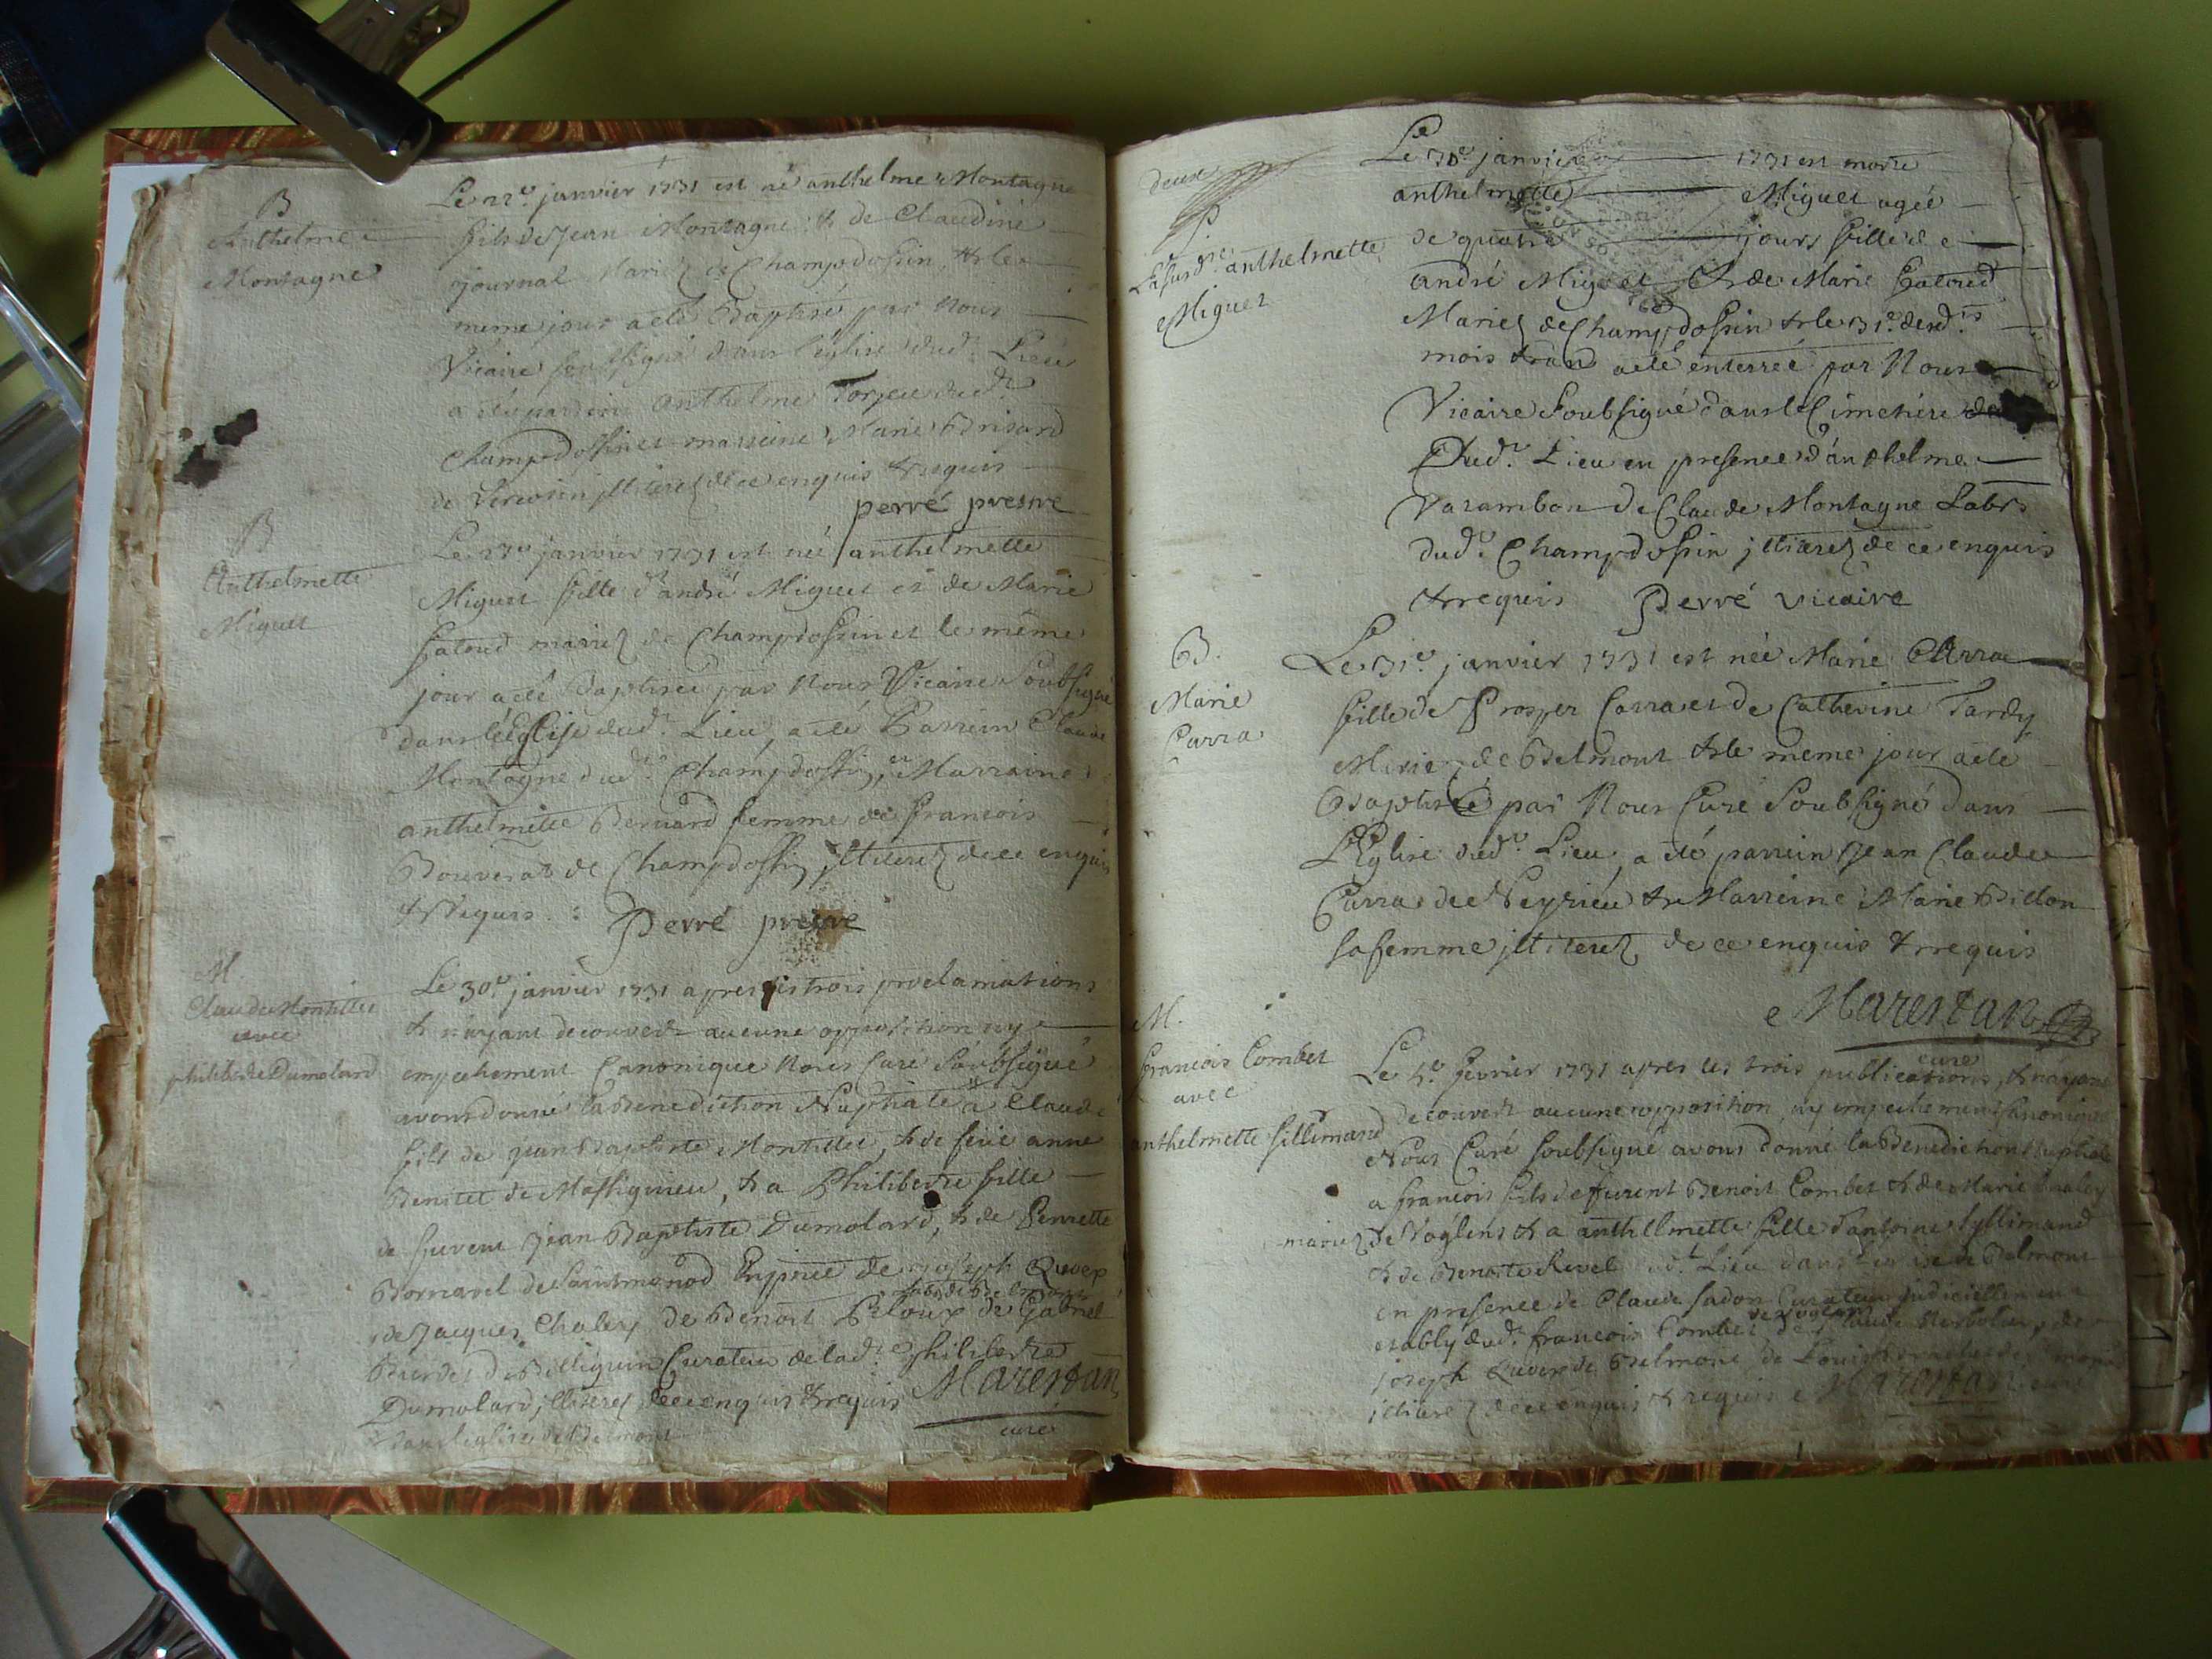 B
Anthelme
Montagne
Le 22e janvier 1731 est né anthelme Montagne
fils de Jean Montagne & de Claudine
journal Mariez de Champdossin & le
meme jour a eté Baptisé par Nous
Vicaire soubsigné dans l'eglise dud. Lieu
a été parrein anthelme Torjeu dud.
Champdossin et marreine Marie Brisard
de illiterez de ce enquis & requis
perré prestre
B
Anthelmette
Miguet
Le 27e janvier 1731 est née anthelmette
Miguet fille d'andré Miguet et de Marie
mariez de Champdossin et le même
jour a eté Baptisée par Nous Vicaire Soubsigné
dans l'Eglise dud. Lieu, a eté Parrein Claude
Montagne dud. Champdossin, et Marraine
anthelmette Bernard femme de francois
Bouverat de Champdossin illiterez de ce enquis
& Requis :
Perré prestre
M.
Claude Montillet
avec
philiberte Dumolard
Le 30e janvier 1731 apres les trois proclamations
& n'ayant decouvert aucune opposition ny
empechement Canonique Nous Curé Soubsigné
avons donné la Benediction Nuptiale a Claude
fils de jean Baptiste Montillet, & de feüe anne
Benitet de Massignieu, & a Philiberte fille
de fuvent Jean Baptiste Dumolard, & de Perrette
Bornarel de Saint En prnce de joseph Quver
labr de Belmont
de Jacques Chaley de Benoit Peloux de Gabriel
Burdet de Billiguin Curateur de lad. philiberte
Dumolard illiterez de ce enquis & requis Marestan
dans l'eglise de Belmont
curé
deux
Lasusd. anthelmette
Miguet
Le 30e janvier 1731 est morte
anthelmette Miguet agée
de quatre jours fille de
andré Miguet & de Marie
Mariez de Champdossin & le 31e desd.
mois & an a eté enterrée par Nous
Vicaire Soubsigné dans le Cimetiere de
Dud. Lieu en presence d'anthelme
Varambon de Claude Montagne Labrs
dud. Champdossin illiterez de ce enquis
& requis Perré vicaire
B.
Marie
Carra
Le 31e janvier 1731 est née Marie Carra
fille de Prosper Carra et de Catherine Tardy
Mariez de Belmont & le meme jour a eté
Baptisée par Nous Curé Soubsigné dans
L'Eglise dud. Lieu, a eté parrein Jean Claude
Carra de Veyrieu & Marreine Marie Billon
sa femme illiterez de ce enquis & requis
Marestan
curé
M.
francois Combet
avec
anthelmette fillimand
Le 5e fevrier 1731 apres les trois publications, & n'ayant
decouvert aucune opposition, ny empechement Canonique
Nous Curé soubsigné avons donné la Benediction Nuptiale
a francois fils de fuvent Benoit Combet & de Marie Chaley
mariez de Voglens & a anthelmette fille d'antoine fyllimand
& de Benoite Revel dud. Lieu dans l'eglise de Belmont
en presence de Claude fadon Curateur judiciellement
de Voglens
etably dud. francois Combet, de Claude de
joseph Quver de Belmont de Louis
illiterez de ce enquis & requis Marestan curé